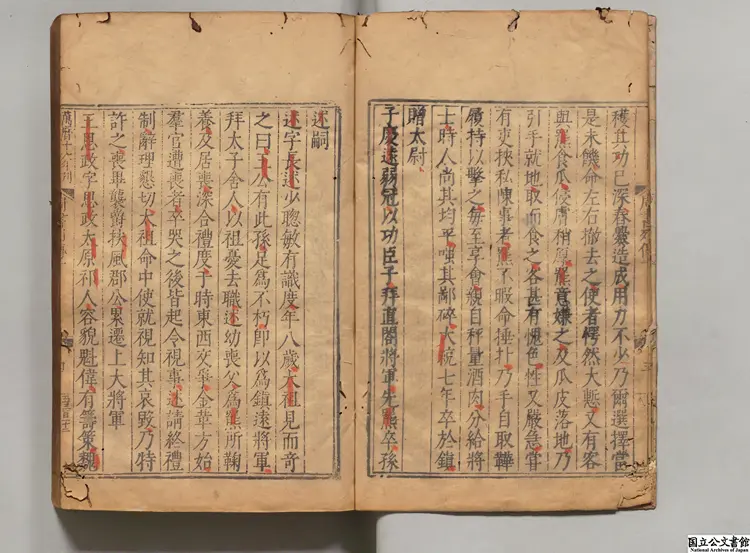 穫其功已深舂爨造成用力不少乃爾選擇當
是未饑命左右撤去之使者愕然大慙又有客
與羆食瓜侵膚稍厚羆意嫌之及瓜皮落地乃
引手就地取而食之客甚有愧色性又嚴急嘗
有吏挾私陳事者羆不暇命捶扑乃手自取鞾
履持以擊之每至享會親自秤量酒肉分給將
士時人尚其均平嗤其鄙碎大統七年卒於鎮
贈太尉
子慶遠弱冠以功臣子拜直閤將軍先羆卒孫
述嗣
述字長述少聰敏有識度年八歲太祖見而奇
之曰王公有此孫足為不朽即以為鎮遠將軍
拜太子舍人以祖憂去職述幼喪父為羆所鞠
養及居喪深合禮度于時東西交爭金革方始
羣官遭喪者卒哭之後皆起令視事述請終禮
制辭理懇切太祖命中使就視知其哀毀乃特
許之喪畢襲爵扶風郡公累遷上大將軍
王思政字思政太原祁人容貌魁偉有籌策魏
萬曆十六年刊
国立公文書館
National Archives of Japan